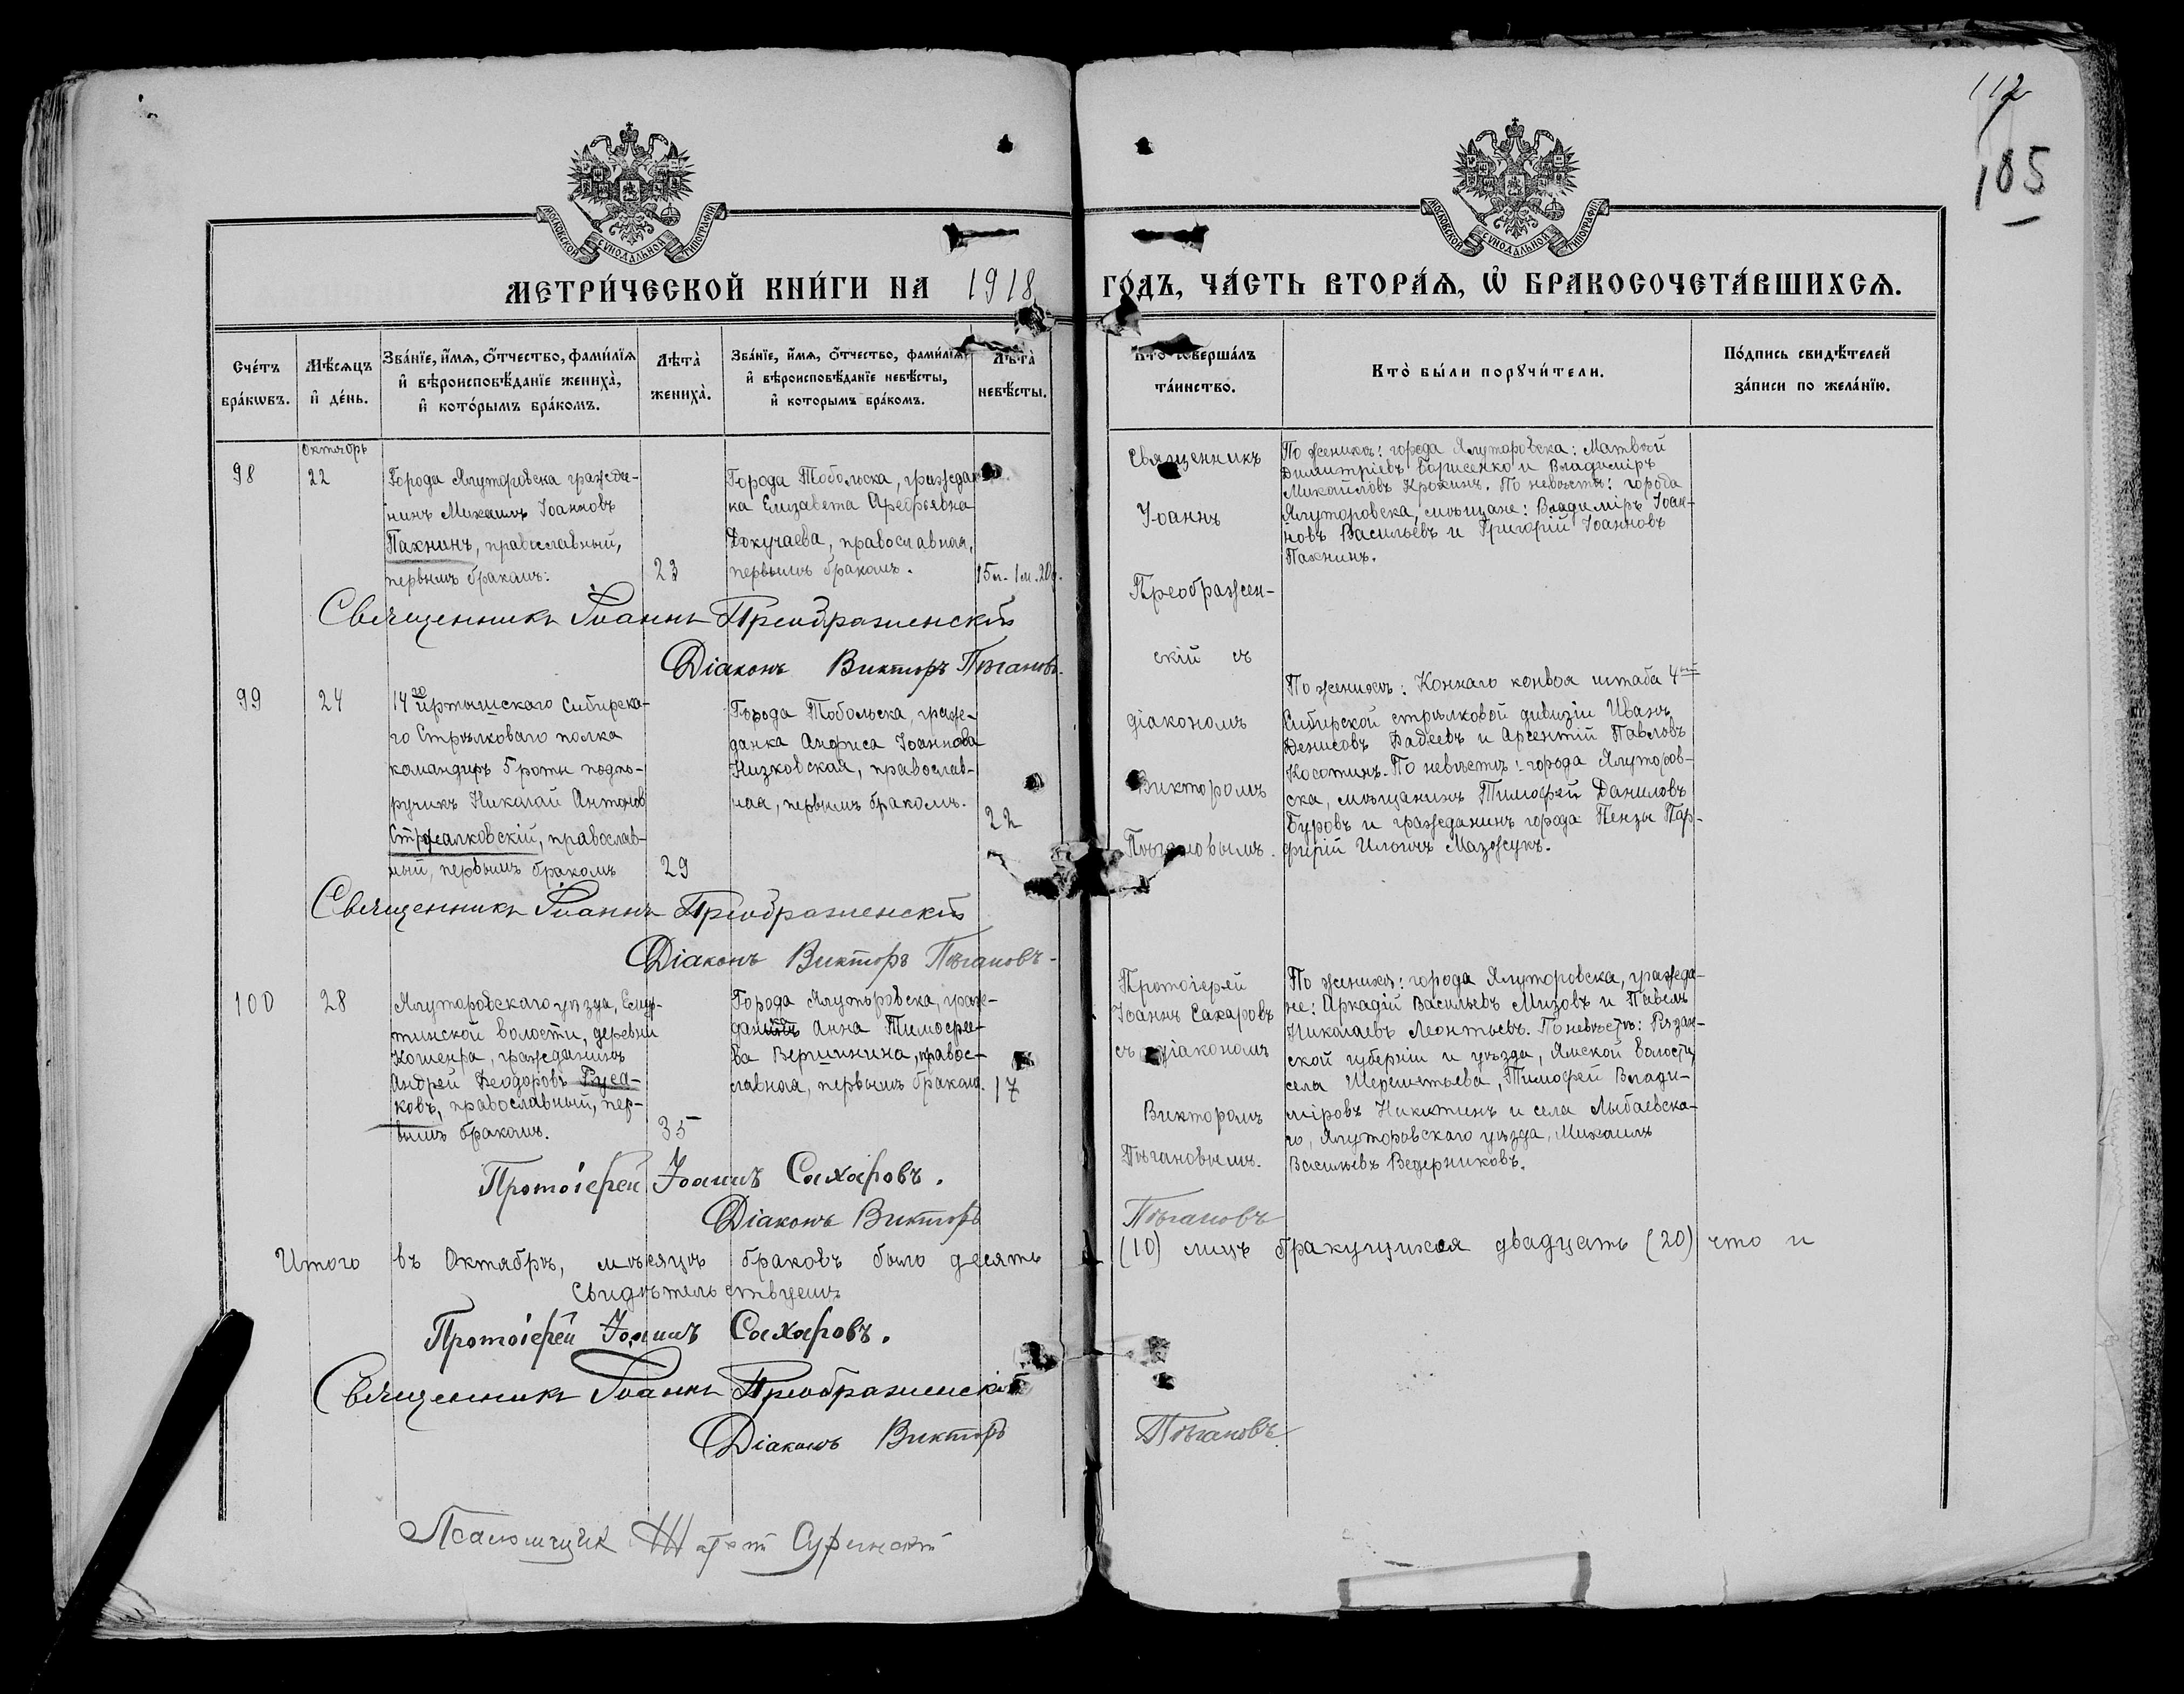 112
105
МОСКОВСКОЙ СѴНОДАЛЬНОЙ ТИПОГРАФІИ
МОСКОВСКОЙ СѴНОДАЛЬНОЙ ТИПОГРАФІИ
МЕТРИ́ЧЕСКОЙ КНИ́ГИ НА 1918 ГО́ДЪ, ЧА́СТЬ ВТОРА́Ѧ, Ѽ БРАКОСОЧЕТА́ВШИХСѦ.
Сче́тъ
бра́кѡвъ.
Мѣ́сѧцъ
и҆ де́нь.
Зва́нїе, и҆́мѧ, ѻ҆́тчество, фами́лїѧ
и҆ вѣроисповѣ́данїе жениха̀,
и҆ кото́рымъ бра́комъ.
Лѣта̀
жениха̀.
Зва́нїе, и҆́мѧ, ѻ҆́тчество, фами́лїѧ
и҆ вѣроисповѣ́данїе невѣ́сты,
и҆ которымъ бра́комъ.
Лѣта̀
невѣ́сты.
Кто̀ соверша́лъ
та́инство.
Кто̀ бы́ли порꙋчи́тели.
По́дпись свидѣ́телей
за́писи по жела́нїю.
98
Октябрь
22
Города Ялуторовска гражда-
нинъ Михаилъ Іоанновъ
Пахнинъ, православный,
первымъ бракомъ:
23
Города Тобольска, граждан
ка Елизавета Арефьевна
Докучаева, православная,
первымъ бракомъ.
15л. 1м. 20д.
Священникъ
Іоаннъ
Преображен-
скій съ
діакономъ
Викторомъ
Пѣгановымъ.
По женихѣ: города Ялуторовска: Матвѣй
Димитріевъ Борисенко и Владиміръ
Михайловъ Крохинъ. По невѣстѣ: города
Ялуторовска, мѣщане: Владиміръ Іоан-
новъ Васильевъ и Григорій Іоанновъ
Пахнинъ.
Священникъ Іоаннъ Преображенскій
Діаконъ Викторъ Пѣгановъ.
99
24
14го Иртышскаго Сибирска-
го Стрѣлковаго полка
командиръ 5 роты подпо-
ручикъ Николай Антонов
Стржалковскій, православ-
ный, первымъ бракомъ
29
Города Тобольска, граж-
данка Анфиса Іоаннова
Низковская, православ-
ная, первымъ бракомъ.
22
По женихѣ: Коннаго конвоя штаба 4ой
Сибирской стрѣлковой дивизіи Иванъ
Денисовъ Фадеевъ и Арсентій Павловъ
Косотинъ. По невѣстѣ: города Ялуторов-
ска, мѣщанинъ Тимофей Даниловъ
Буровъ и гражданинъ города Пензы Пор-
фирій Мазжукъ.
Священникъ Іоаннъ Преображенскій
Діаконъ Викторъ Пѣгановъ
100
28
Ялуторовскаго уѣзда,
тинской волости, деревни
гражданинъ
Андрей Ѳеодоровъ Руса-
ковъ, православный, пер-
вымъ бракомъ.
35
Города Ялуторовска, граж-
Анна Тимофее-
ва Вершинина, правос-
лавная, первымъ бракомъ.
17
Протоіерей
Іоаннъ Сахаровъ
съ діакономъ
Викторомъ
Пѣгановымъ.
По женихѣ: города Ялуторовска, гражда-
не: Аркадій Васильевъ Мизовъ и Павелъ
Николаевъ Леонтьевъ. По невѣстѣ: Рязан-
ской губерніи и уѣзда, Ямской волости,
села Шереметьева, Тимофей Влади-
міровъ Никитинъ и села Лыбаевска-
го, Ялуторовскаго уѣзда, Михаилъ
Васильевъ Ведерниковъ.
Протоіерей Іоаннъ Сахаровъ.
Діаконъ Викторъ Пѣгановъ
Итого въ Октябрѣ, мѣсяцѣ браковъ было десять (10) лицъ бракущихся двадцать (20) что и
Свидѣтельствуемъ
Протоіерей Іоаннъ Сахаровъ.
Священникъ Іоаннъ Преображенскій
Діаконъ Викторъ Пѣгановъ
Псаломщик